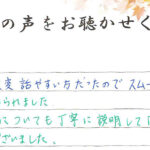 の声をお聴かせく
変話やすい方だったのでスムー
られました
についても丁寧に説明して
ざいました。